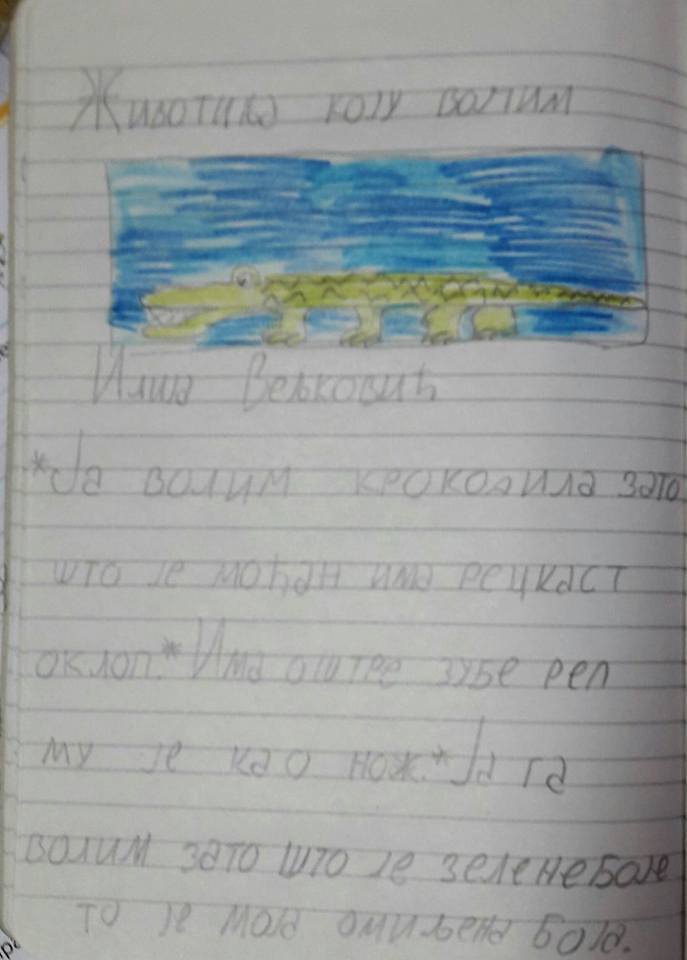 Животиња коју волим
Илија Вељковић
*Ја волим крокодила зато
што је моћан има рецкаст
оклоп.*Има оштре зубе реп
му је као нож.*Ја га
волим зато што је зелене боје
то је моја омиљена боја.